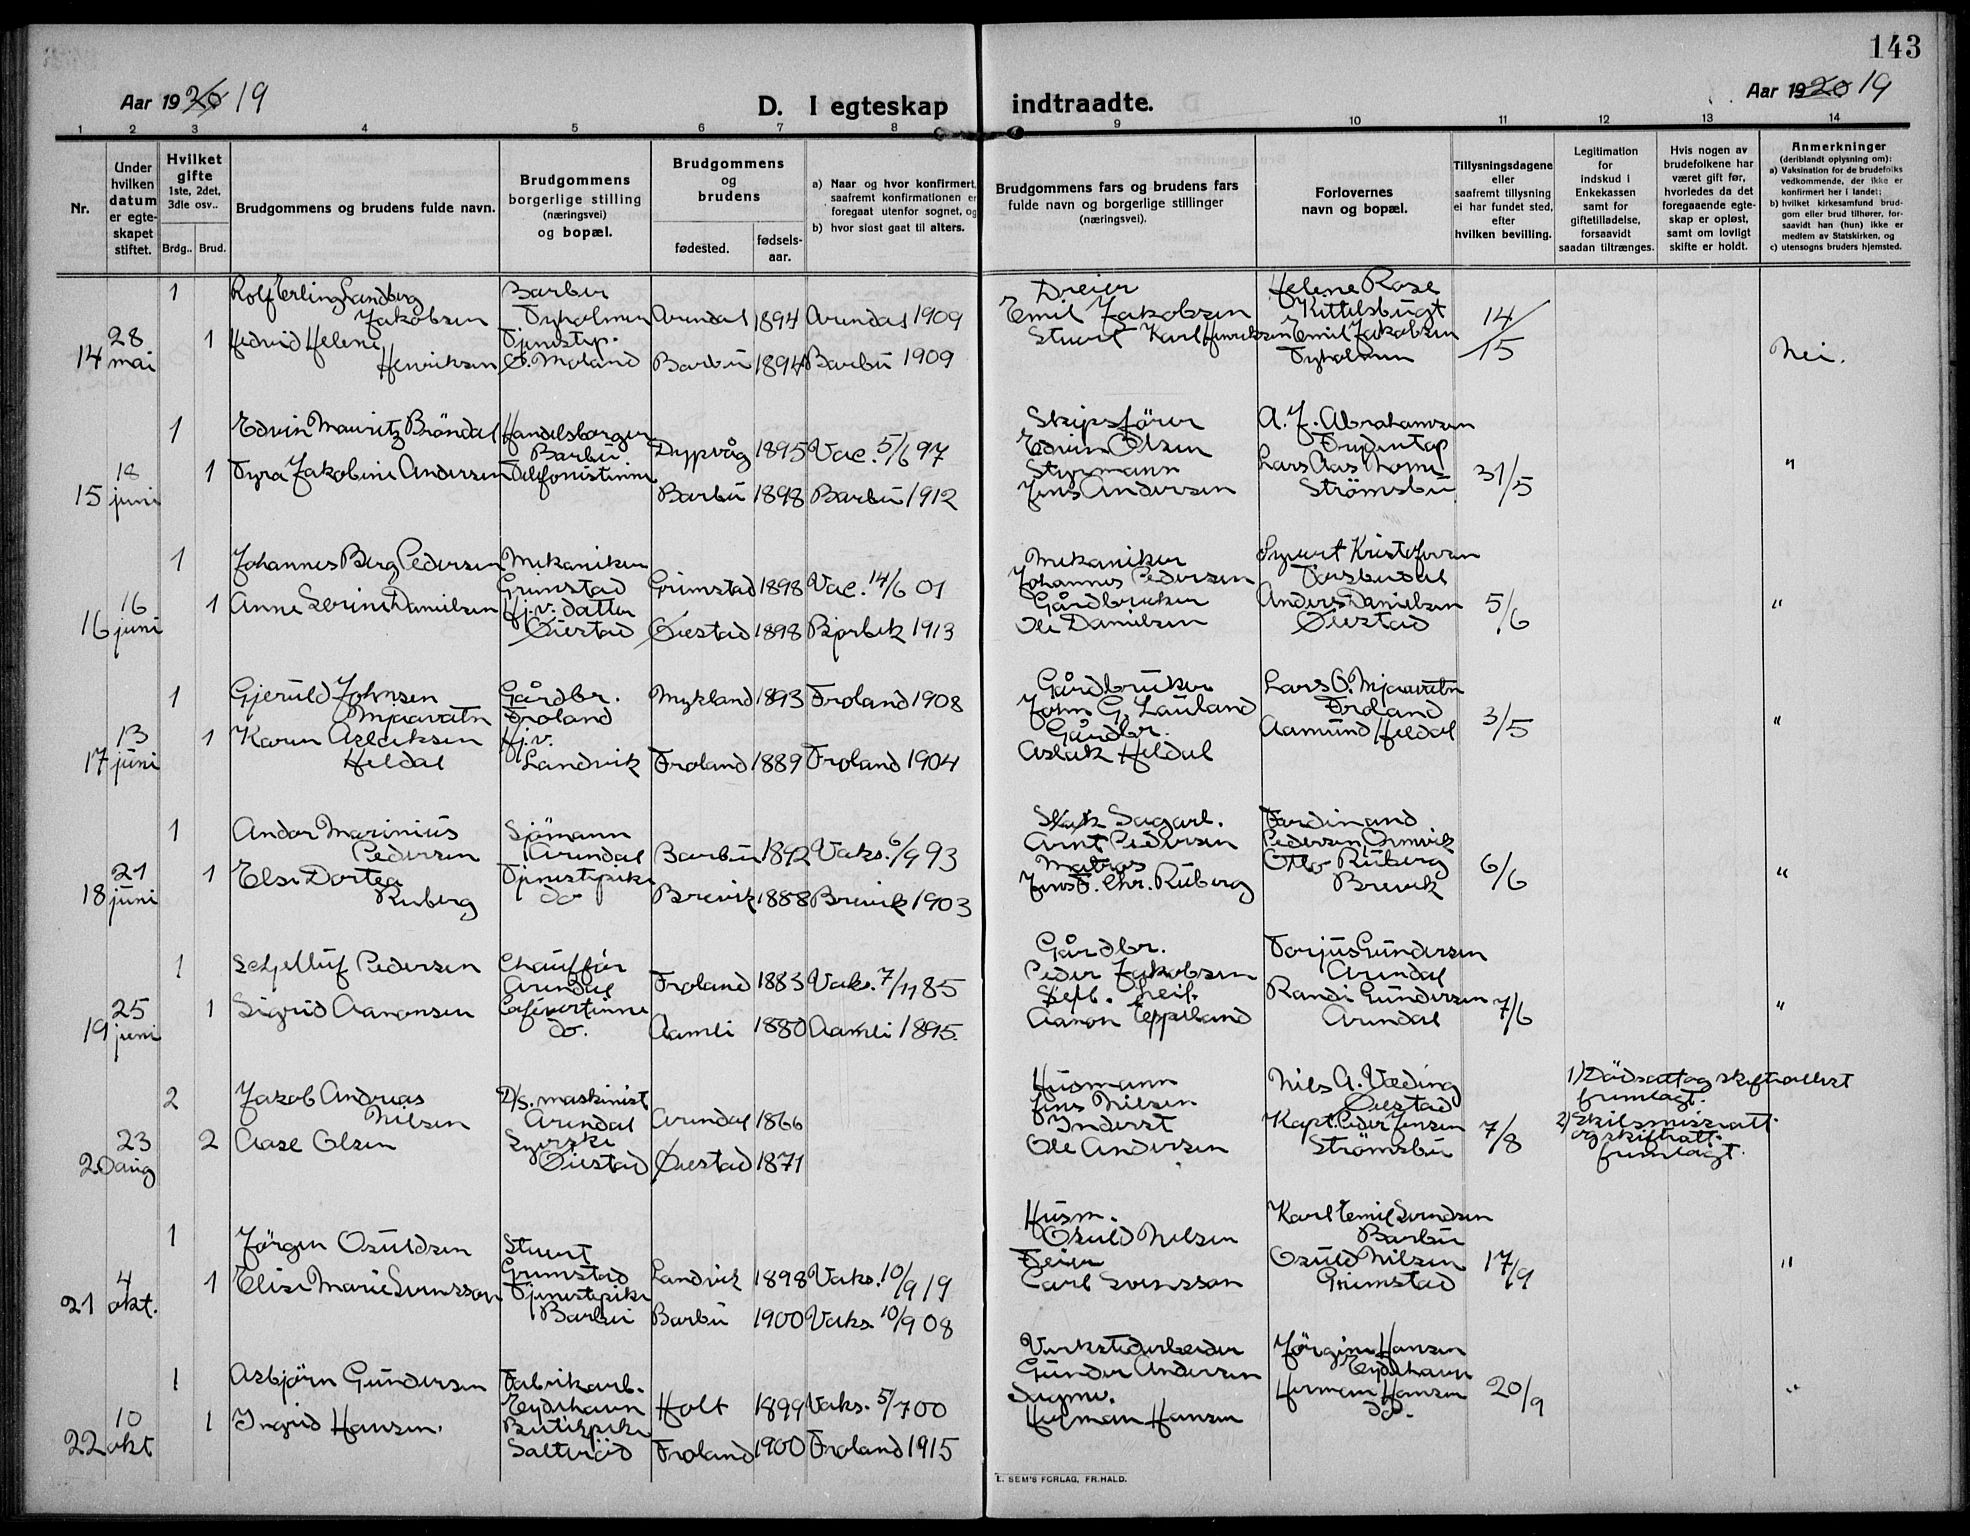 143
Aar 1920 19
D. I egteskap indtraadte.
Aar 1920 19
1 2 3 4 5 6 7 8 9 10 11 12 13 14
Nr.
Under hvilken datum er egteskapet stiftet.
Hvilket gifte
1ste, 2det, 3dle osv..
Brdg.. Brud.
Brudgommens og brudens fulde navn.
Brudgommens borgerlige stilling (næringsvei) og bopæl.
Brudgommens og brudens
fødested. fødselsaar.
a) Naar og hvor konfirmert, saafremt konfirmationen er foregaat utenfor sognet, og
b) hvor sidst gaat til alters.
Brudgommens fars og brudens fars fulde navn og borgerlige stillinger (næringsvei).
Forlovernes navn og bopæl.
Tillysningsdagene eller saafremt tillysning ei har fundet sted, efter hvilken bevilling.
Legitimation for indskud i Enkekassen samt for giftetilladelse, forsaavidt saadan tiltrænges.
Hvis nogen av brudefolkene har været gift før, hvorledes da det foregaaende egteskap er opløst, samt om lovligt skifte er holdt.
Anmerkninger
(deriblandt oplysning om):
a) Vaksination for de brudefolks vedkommende, der ikke er konfirmert her i landet;
b) hvilket kirkesamfund brudgom eller brud tilhører, forsaavidt han (hun) ikke er medlem av Statskirken, og
c) utensogns bruders hjemsted.
14 28 mai 1 Rolf Erling Sandberg Jakobsen Barber Tyholmen Arendal 1894 Arendal 1909 Dreier Emil Jakobsen Helene Rose Kittelsbugt 14/15
1 Hedvid Helene Henriksen Tjenestep. Ø. Moland Barbu 1894 Barbu 1909 Stuert Karl Henriksen Emil Jakobsen Tyholmen Nei.
15 18 juni 1 Edvin Mauritz Bröndal Handelsborger Barbu Dypvåg 1895 Vac. 5/6 97 Skipsförer Edvin Olsen A. J. Abrahamsen Frydentop 31/5 "
1 Tyra Jakobine Andersen Telefonistinne Barbu 1898 Barbu 1912 Styrmann Jens Andersen Lars Aas Strömsbu
16 16 juni 1 Johannes Berg Pedersen Mekaniker Grimstad Grimstad 1898 Vac. 14/6 01 Mekaniker Johannes Pedersen Kristofersen 5/6 "
1 Anne Serine Danielsen Hj.v. datter Øiestad Øiestad 1898 Bjorbek 1913 Gårdbruker Ole Danielsen Anders Danielsen Øiestad
17 13 juni 1 Gjeruld Johnsen Mjaavatn Gårdbr. Froland Mykland 1893 Froland 1908 Gårdbruker John G. Lauland Lars O. Mjaavatn Froland 3/5 "
1 Karen Aslaksen Heldal Hj.v. Landvik Froland 1889 Froland 1904 Gårdbr. Aslak Heldal Aamund Heldal
18 21 juni 1 Andor Marinius Pedersen Sjömann Arendal Barbu 1892 Vaks. 6/9 93 Sagarb. Arnt Pedersen Ferdinand Pedersen 6/6 "
1 Else Dortea Ruberg Tjenestepike do Brevik 1888 Brevik 1903 Matros Jens Chr. Ruberg Otto Ruberg Brevik
19 25 juni 1 Pedersen Chaufför Arendal Froland 1883 Vaks. 7/11 85 Gårdbr. Peder Jakobsen Torjus Gundersen Arendal 7/6 "
1 Sigrid Aanonsen Cafévertinne do. Aamli 1880 Aamli 1895. Aanon Eppeland Randi Gundersen Arendal
20 23 aug 2 Jakob Andreas Nilsen D/s. maskinist Arendal Arendal 1866 Husmann Jens Nilsen Nils A. Væding Øiestad 7/8 1) Dödsatt og skifteattest fremlagt.
2 Aase Olsen Syerske Øiestad Øiestad 1871 Inderst Ole Andersen Kapt. Peder Jensen Strömsbu 2) Skilsmisseatt. og skifteatt. fremlagt.
21 4 okt. 1 Jörgen Osuldsen Stuert Grimstad Landvik 1898 Vaks. 10/9 19 Husm. Osuld Nilsen Karl Emil Svendsen Barbu 17/9 "
1 Elise Marie Svensson Tjenestepike Barbu Barbu 1900 Vaks. 10/9 08 Feier Carl Svensson Osuld Nilsen Grimstad
22 10 okt 1 Asbjörn Gundersen Fabrikarb. Eydehavn Holt 1899 Vaks. 5/7 00 Verkstedarbeider Gunder Andersen Jörgine Hansen Eydehavn 20/9 "
1 Ingrid Hansen. Butikpike Saltröd Froland 1900 Froland 1915 Herman Hansen Herman Hansen do.
E. SEM'S FORLAG, FR.HALD.